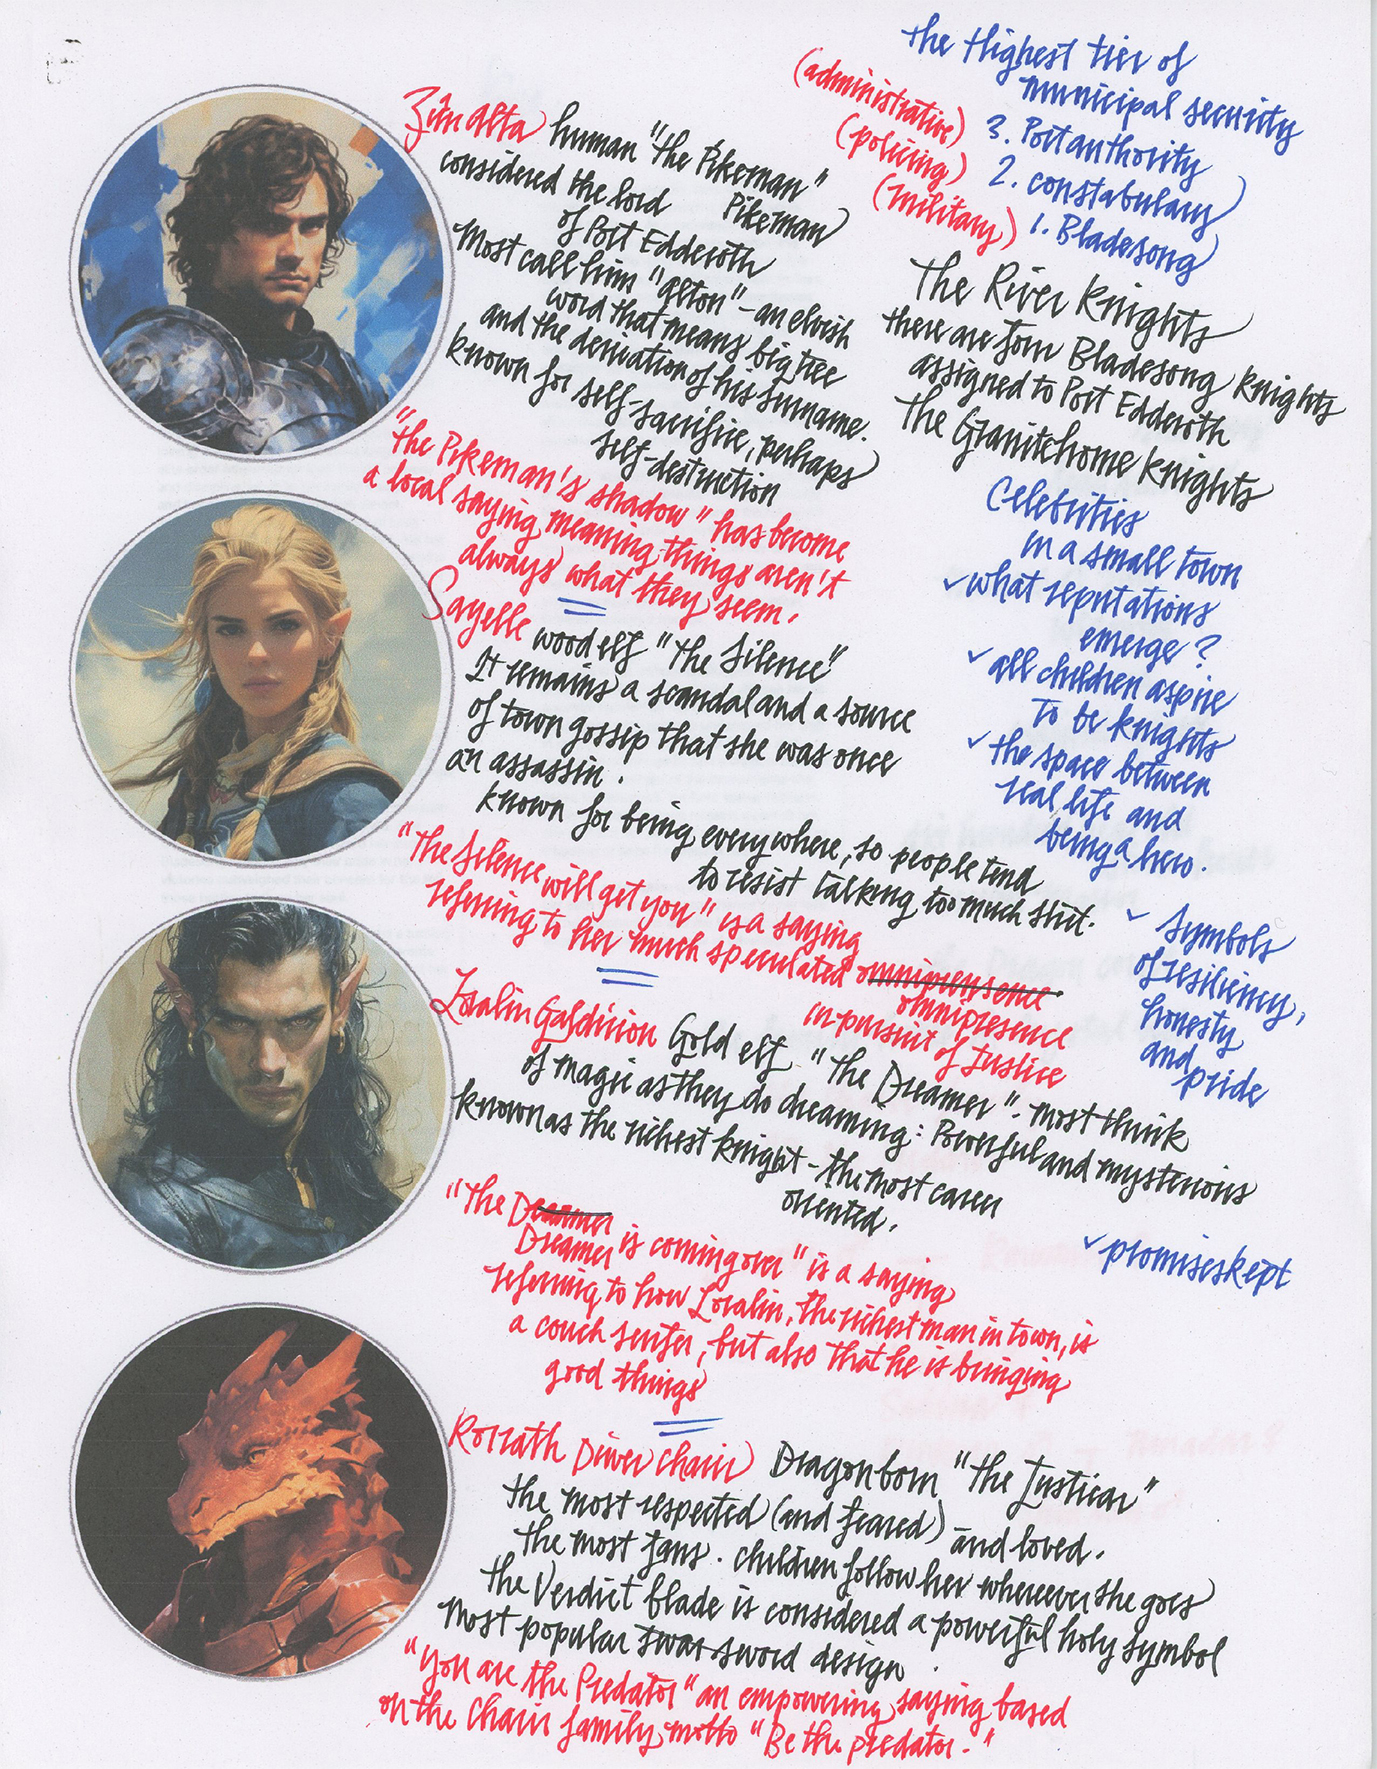 the Highest tier of
municipal security
(administrative) 3. Port authority
(policing) 2. constabulary
(military) 1. Bladesong
The River Knights
there are four Bladesong Knights
assigned to Port Edderoth
The Granitehome Knights
Celebrities
in a small town
✓ what reputations
emerge?
✓ all children aspire
to be knights
✓ the space between
real life and
being a hero.
✓ symbols
of resiliency,
honesty
and
pride
✓ promises kept
Zim Alta human "the Pikeman"
considered the lord Pikeman
of Port Edderoth
Most call him "Alton" - an elvish
word that means big tree
and the derivation of his surname.
known for self-sacrifice, perhaps
self-destruction
"the Pikeman's shadow" has become
a local saying meaning things aren't
always what they seem.
Sayelle wood elf "The Silence"
It remains a scandal and a source
of town gossip that she was once
an assassin.
known for being everywhere, so people tend
to resist talking too much shit.
"The Silence will get you" is a saying
referring to her much speculated
omnipresence
in pursuit of Justice
Loralin Gold elf "The Dreamer". Most think
of magic as they do dreaming: Powerful and mysterious
known as the richest knight - the most career
oriented.
"The Dreamer
Dreamer is coming over" is a saying
referring to how Loralin, the richest man in town, is
a couch surfer, but also that he is bringing
good things
Rorrath Diver Chair Dragonborn "The Justicar"
the most respected (and feared) - and loved.
the most fans. Children follow her wherever she goes
the Verdict blade is considered a powerful holy symbol
Most popular swar sword design.
"You are the Predator" an empowering saying based
on the Chair family motto "Be the predator."